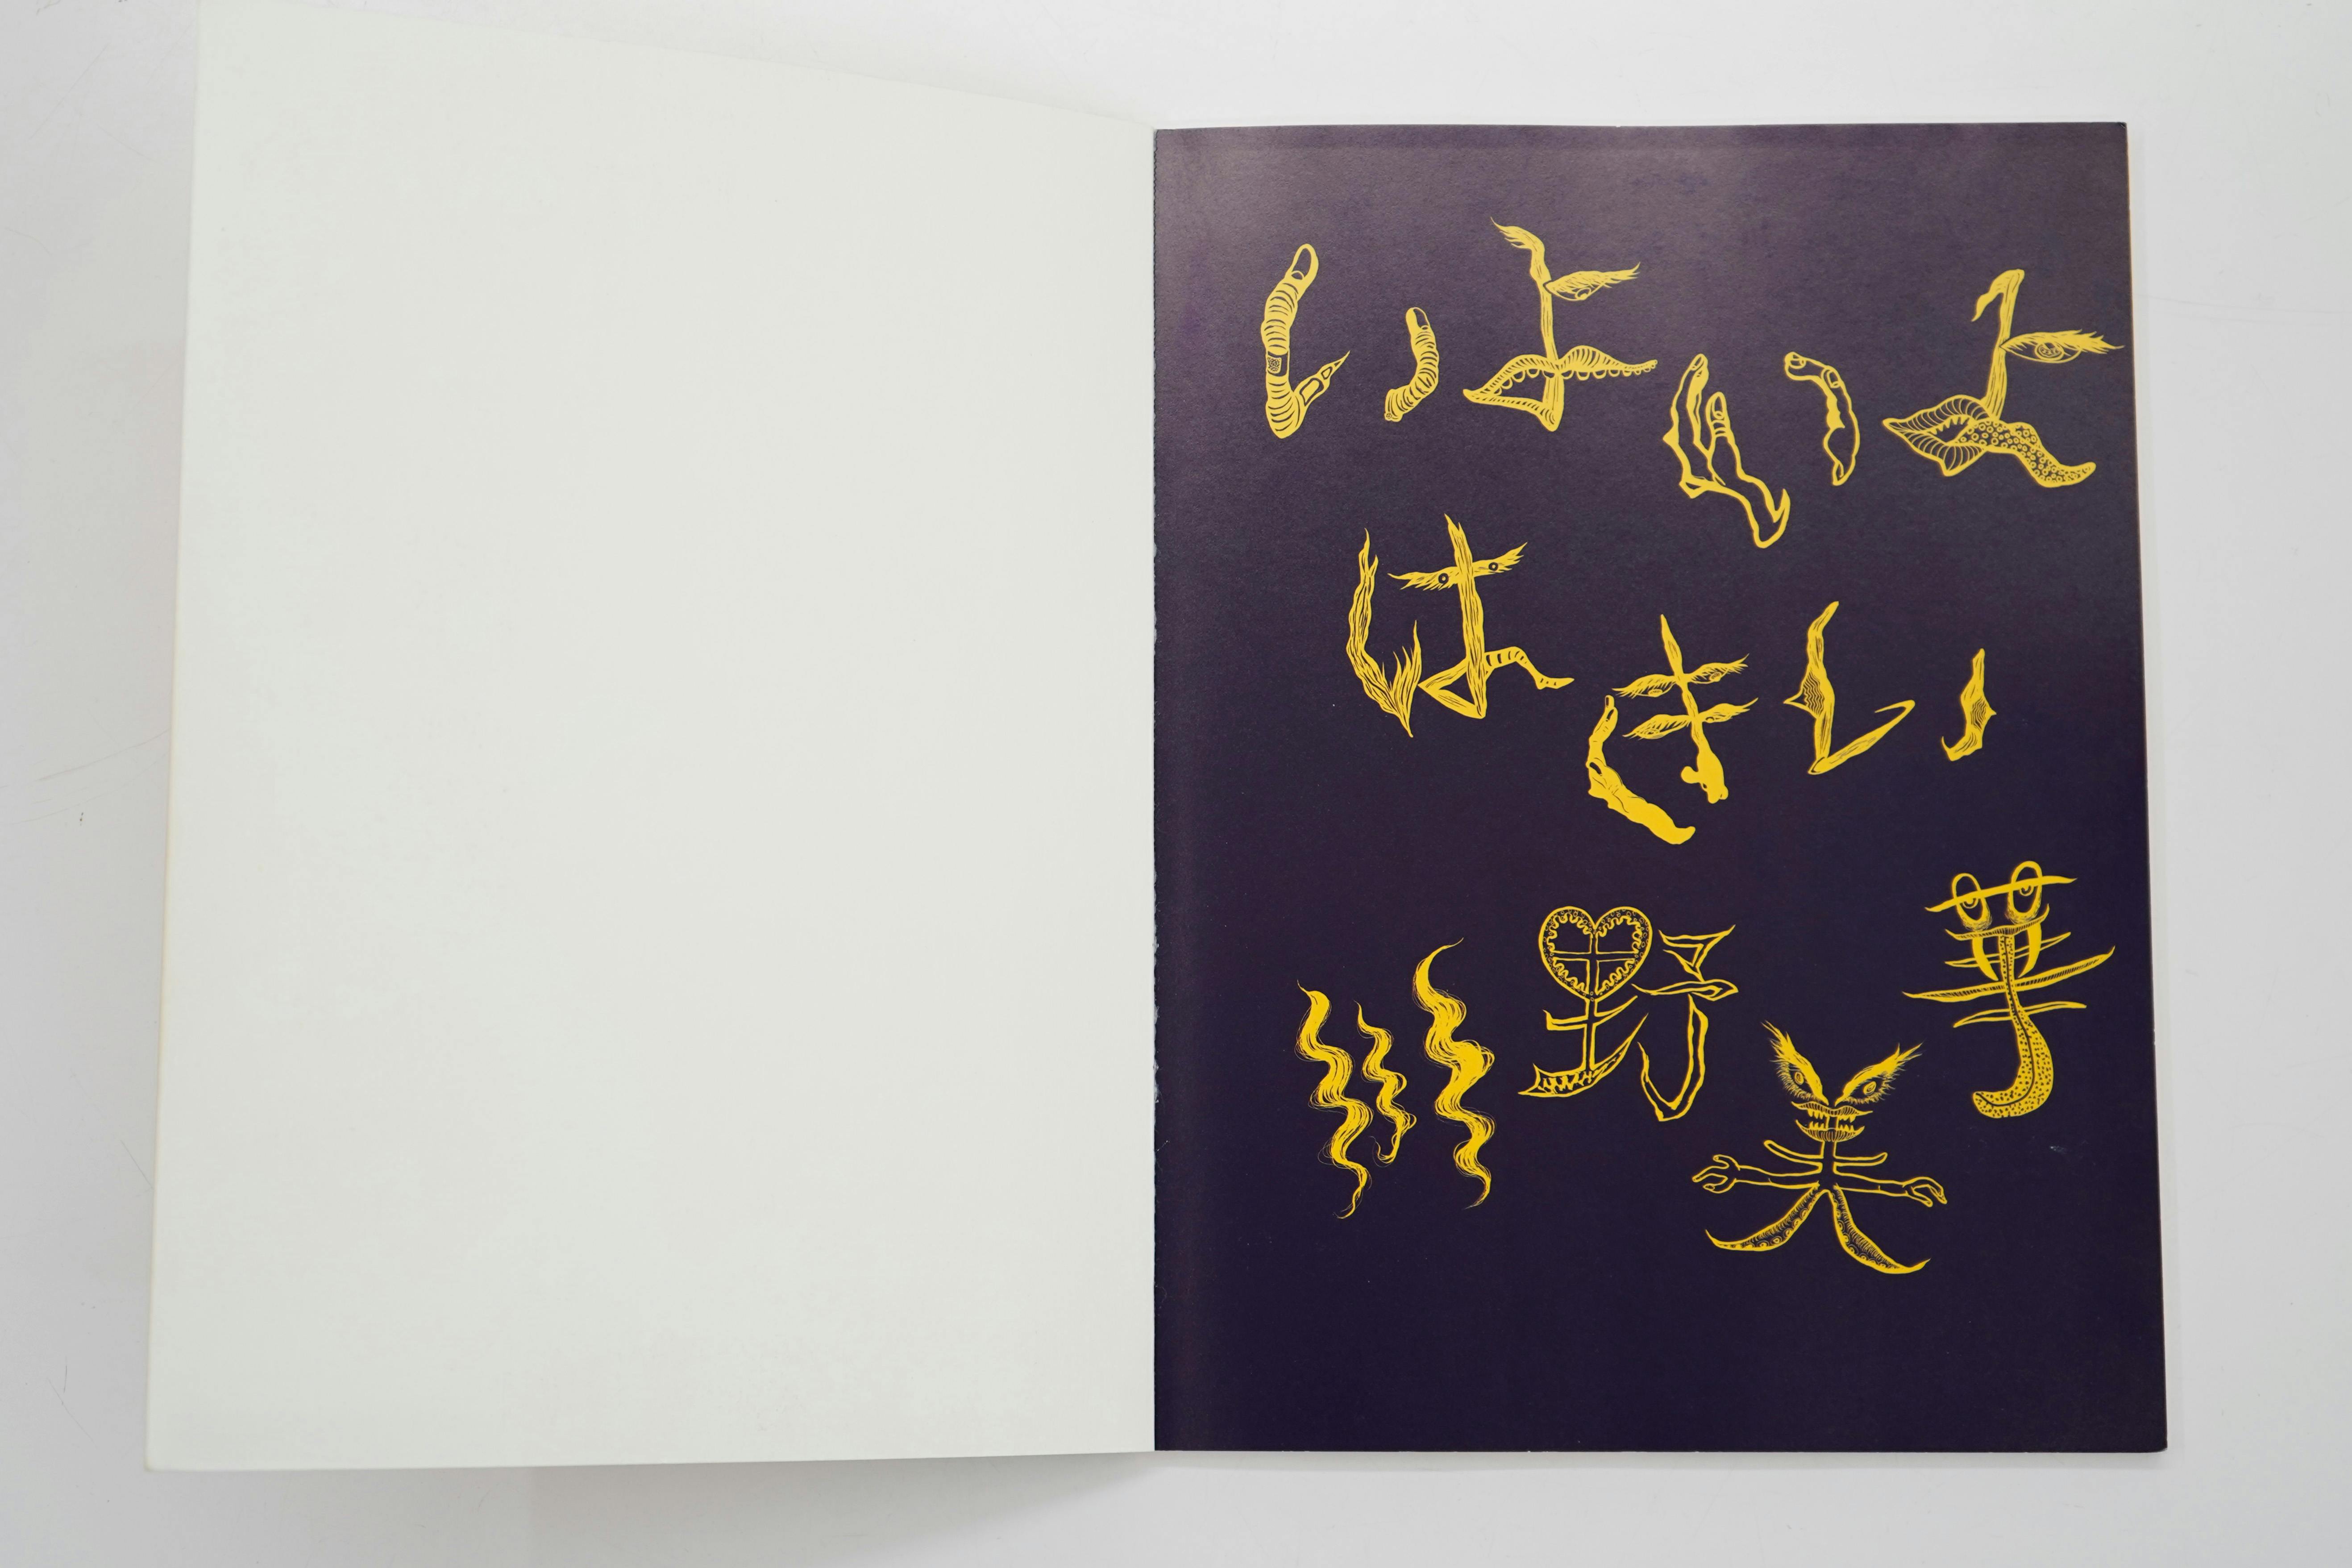 いよいよ
はきい
川野美華